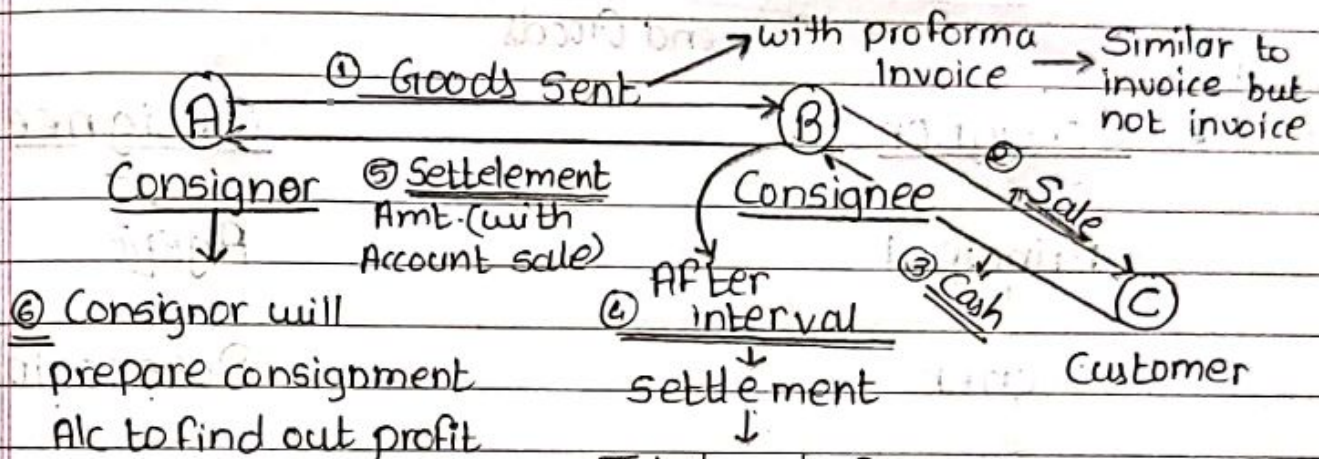 with proforma Invoice → Similar to invoice but not invoice
① Goods Sent
A
B
Consignor
⑤ Settelement
Amt. (with
Account sale)
Consignee
② Sale
③ Cash
C
Customer
After
④ interval
↓
Settlement
↓
⑥ Consignor will
prepare consignment
A/c to find out profit